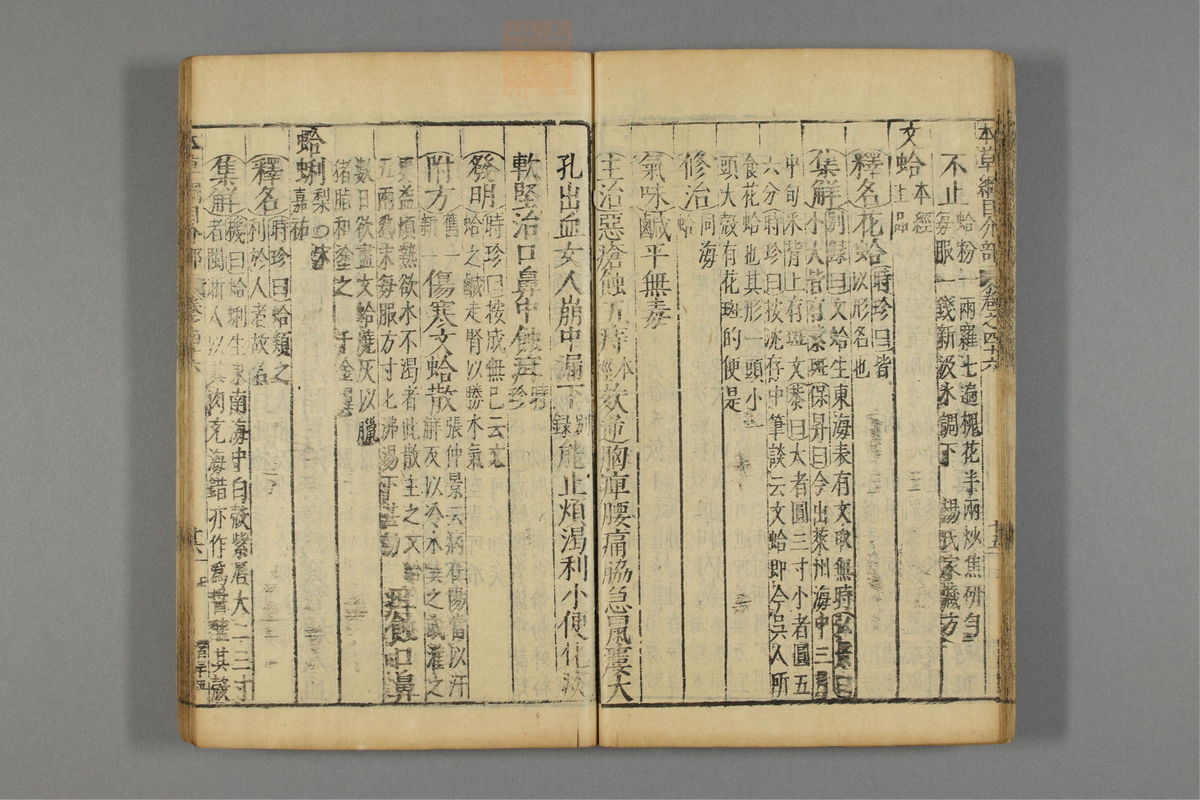 本草綱目介部 卷之四十六
不止 蛤粉一兩羅七遍槐花半兩炒焦研勻
每服一錢新汲水調下 楊氏家藏方
文蛤 本經
上品
釋名花蛤 時珍曰皆
以形名也
集解 別録曰文蛤生東海表有文取無時弘景曰
小大皆有紫斑保昇曰今出萊州海中三月
中旬采背上有斑文恭曰大者圓三寸小者圓五
六分時珍曰按沈存中筆談云文蛤即今吳人所
食花蛤也其形一頭小
頭大殼有花斑的便是
修治 同海
蛤
氣味鹹平無毒
主治惡瘡蝕五痔 本
經 欬逆胸痺腰痛脇急鼠瘻大
孔出血女人崩中漏下 別
録 能止煩渴利小便化痰
軟堅治口鼻中蝕疳 時
珍
發明 時珍曰按成無已云文
蛤之鹹走腎以勝水氣
附方 舊一
新一 傷寒文蛤散 張仲景云病在陽當以汗
解反以冷水噀之或灌之
更益煩熱欲水不渴者此散主之文蛤
五兩爲末每服方寸匕沸湯下甚効 疳蝕口鼻
數日欲盡文蛤燒灰以臘
猪脂和塗之 千金翼
蛤蜊 梨〇宋
嘉祐
釋名 時珍曰蛤類之
利於人者故名
集解 機曰蛤蜊生東南海中白殼紫唇大二三寸
者閩浙人以其肉充海錯亦作爲醬醯其殼
本草綱目介部 卷四六 廿六